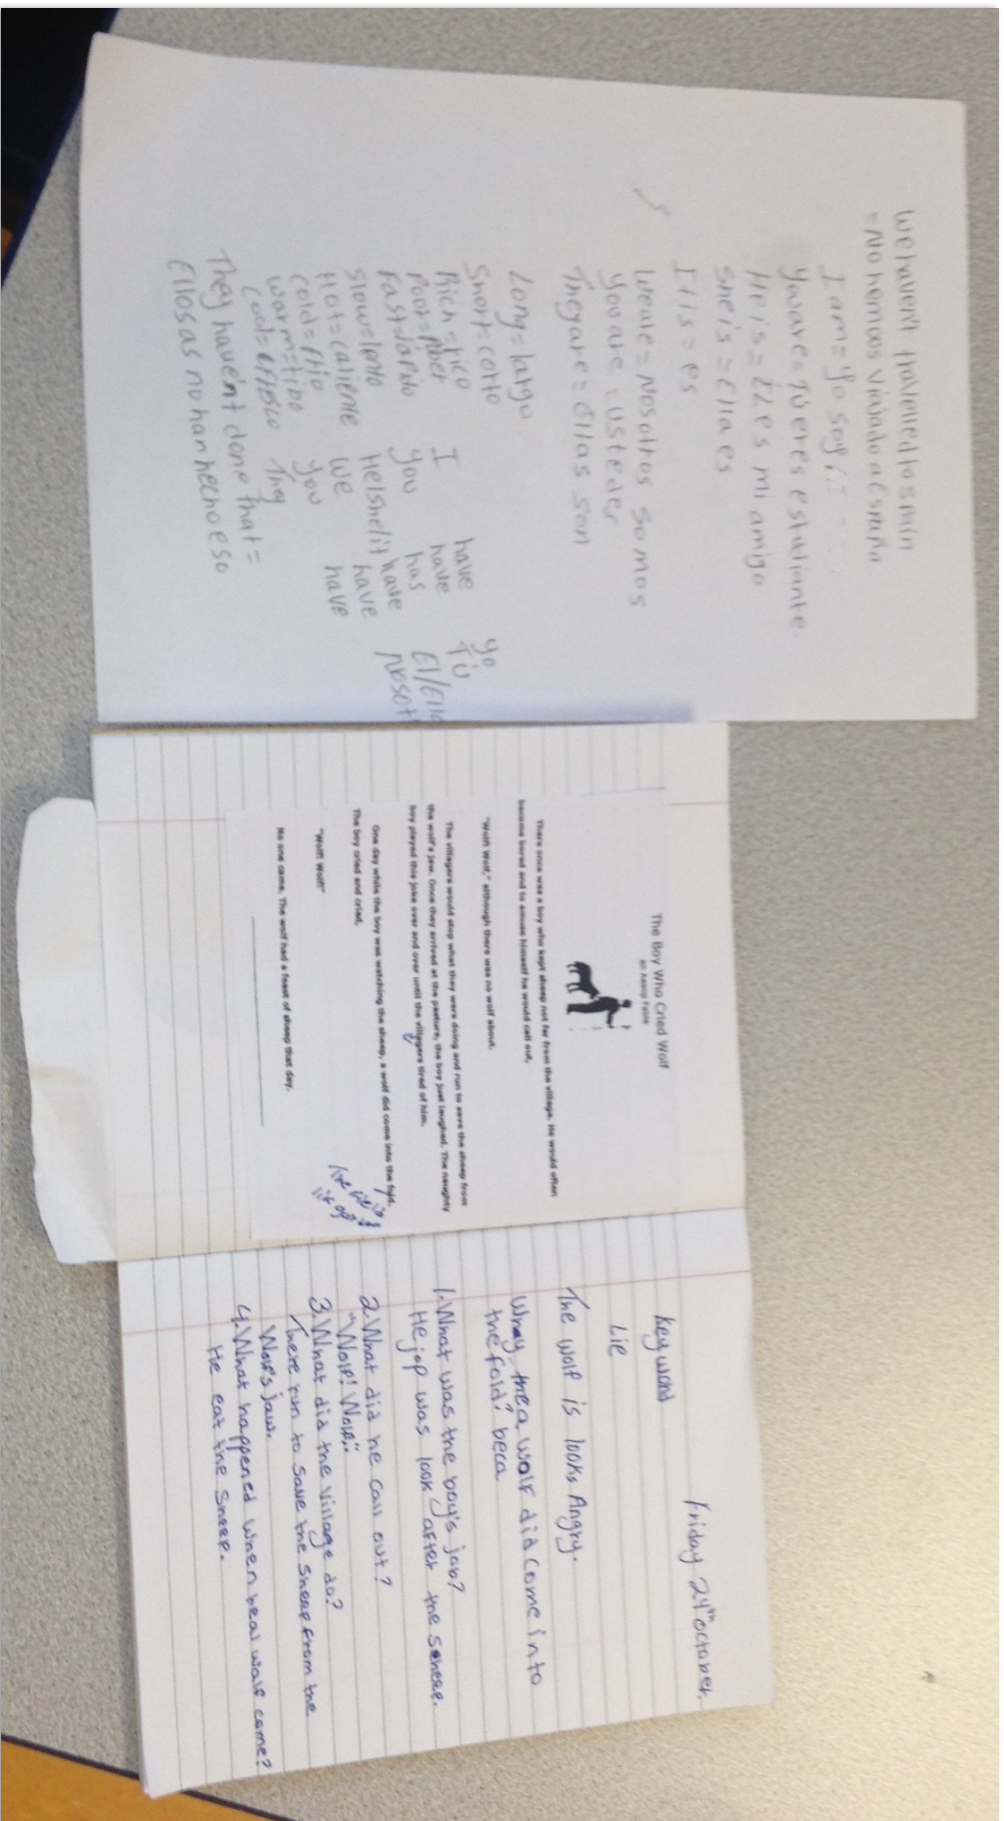 We haven't travelled to smin
= No hemos viajado a España
I am = yo soy
You are = Tú eres estutiante
He is = ÉL es mi amigo
She is = Ella es
It Is = es
We are = Nosottros somos
you are = usteder
They are = Ellas son
Long = largo
Short = cotto
Rich = rico
Poor = pober
Fast = rápido
Slow = lento
Hot = caliente
cold = frio
worm = tibo
cool = efresco
I have yo
you have TÚ
has El/Ella
He/she/it have Nosot
we have
you have
They
They haven't done that =
Ellos as no han hecho eso
The Boy Who Cried Wolf
an Aesop Fable
There once was a boy who kept sheep not far from the village. He would often
become bored and to amuse himself he would call out,
"Wolf! Wolf," although there was no wolf about.
The villagers would stop what they were doing and run to save the sheep from
the wolf's jaw. Once they arrived at the pasture, the boy just laughed. The naughty
boy played this joke over and over until the villagers tired of him.
One day while the boy was watching the sheep, a wolf did come into the fold.
The boy cried and cried,
"Wolf! Wolf!"
No one came. The wolf had a feast of sheep that day.
Friday 24th october.
key word
Lie
The wolf is looks Angry.
Whay the a wolf did come into
the fold? beca
1. What was the boy's job?
He jop was look after the sheep.
2. What did he call out?
"Wolf! Wolf!"
3. What did the village do?
There run to save the sheep from the
Wolf's jaw.
4. What happened when real wolf come?
He eat the sheep.